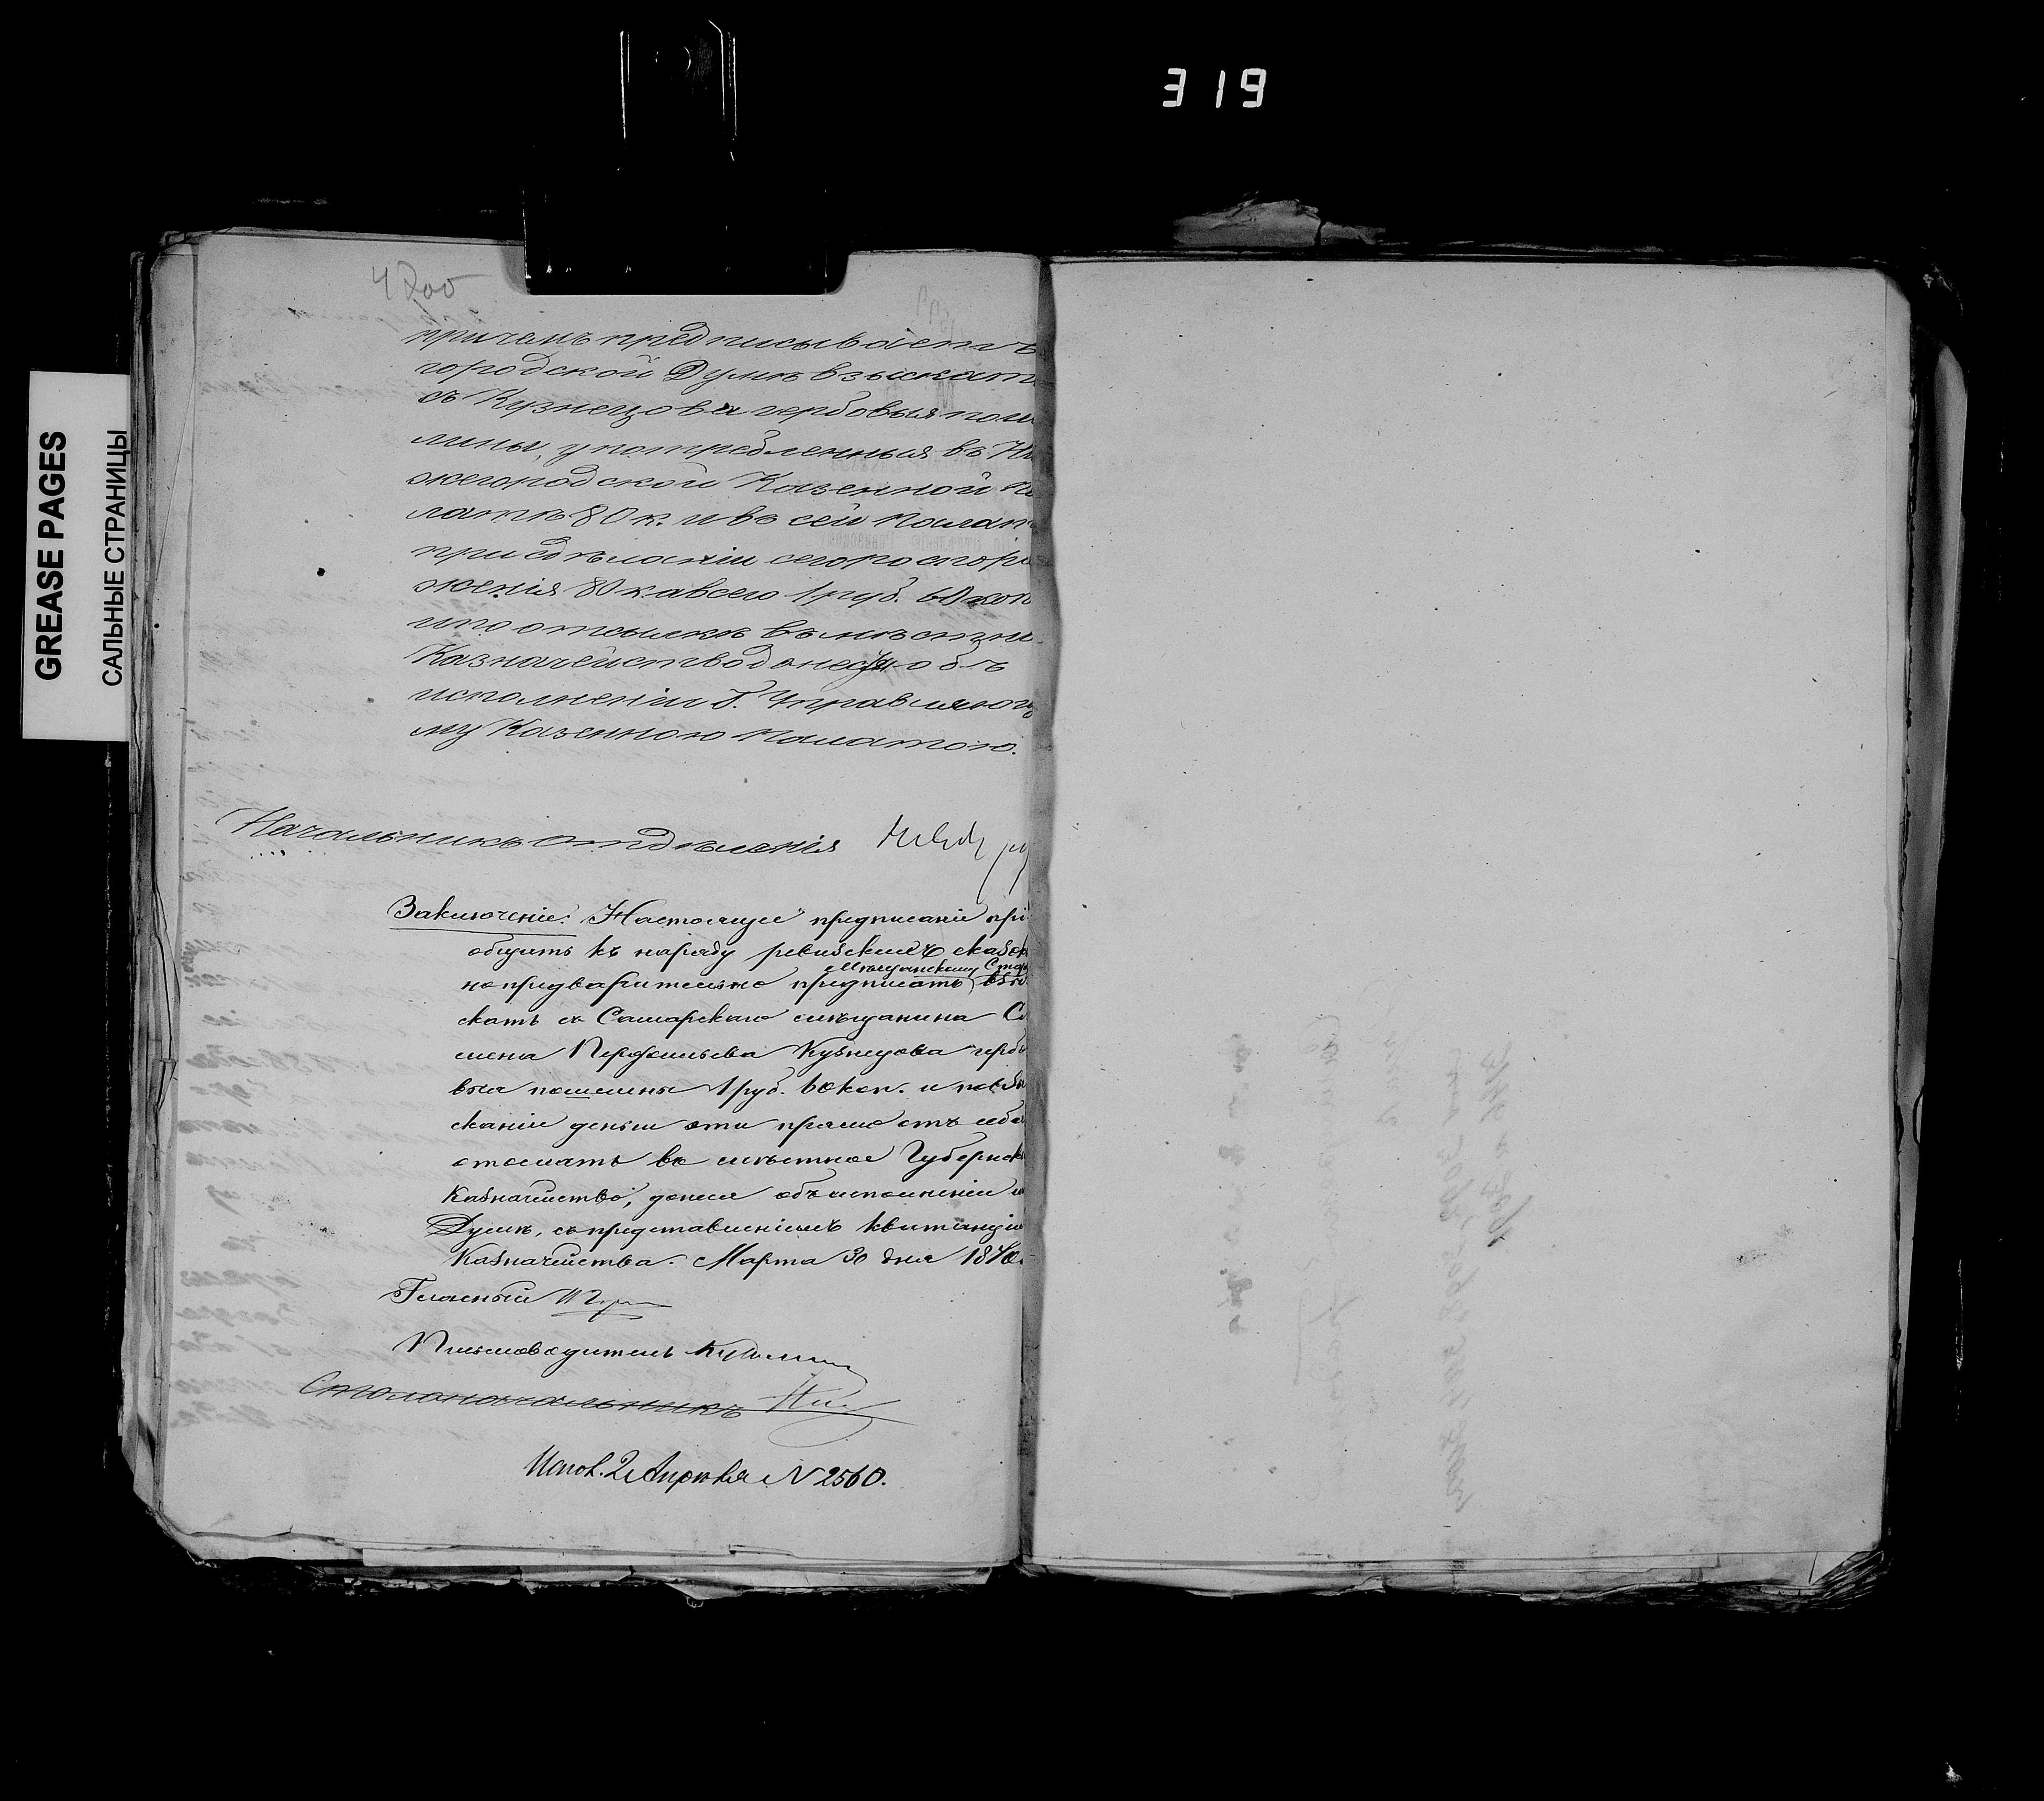 319
GREASE PAGES
САЛЬНЫЕ СТРАНИЦЫ
причемъ предписываетъ
городской Думѣ взыскат
съ Кузнецова гербовыя пош
лины, употребленныя въ Ни
жегородской Казенной Па
латѣ 80 к. и въ сей Палат
при сдѣланіи сего распоря
женія 80 к. а всего 1 руб. 60 коп
и по отсылкѣ въ мѣстно
Казначейство донести объ
исполненіи Г. Управляюще
му Казенною Палатою.
Начальникъ отдѣленія
Заключеніе: Настоящее предписаніе прі
общить къ наряду ревизскихъ сказок
Мѣщанскому Стар
но предварительно предписать взы
скать съ Самарскаго мѣщанина Се
мена Перфильева Кузнецова гербо
выя пошлины 1 руб. 60 коп. и по взы
сканіи деньги эти прямо отъ себя
отослать въ мѣстное Губернск
Казначейство, донеся объ исполненіи
Думѣ, съ представленіемъ квитанціи
Казначейства. Марта 30 дня 1870
Гласный
Письмоводитель
Столоначальникъ
Испол. 2 Апрѣля N 2560.